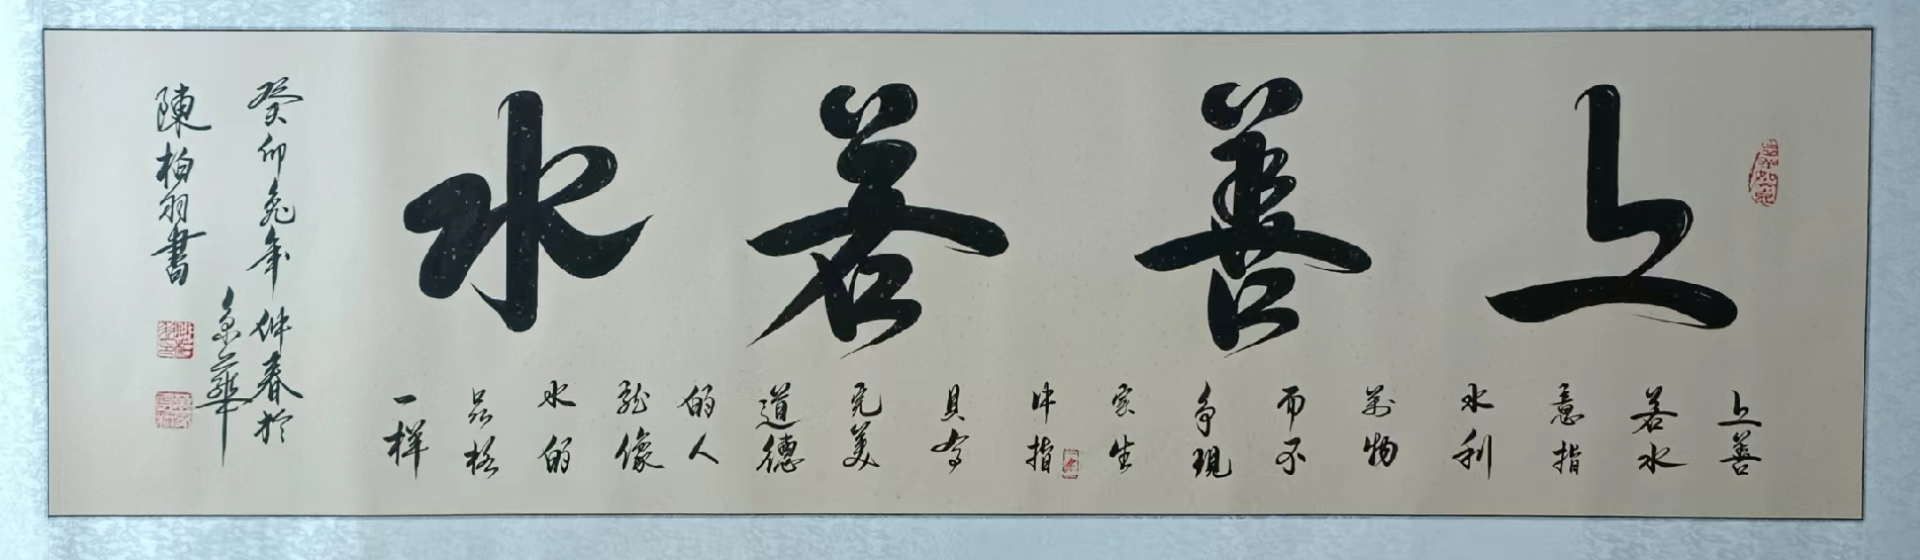 上善若水
上善
若水
意指
水利
萬物
而不
争現
实生
中指
具有
完美
道德
的人
就像
水的
品格
一样
癸卯兔年仲春於
京華
陳柏羽書